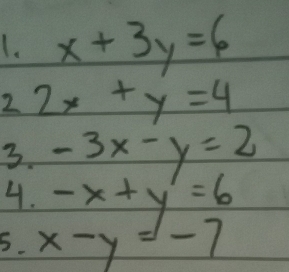 1. x + 3y = 6
2 2x + y = 4
3. - 3x - y = 2
4. - x + y = 6
5. x - y = - 7